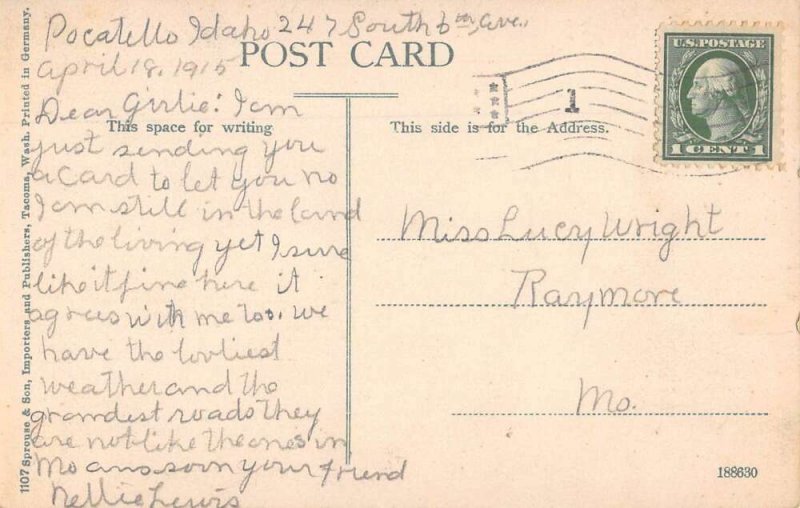 Pocatello Idaho 247 South 6th Ave.
POST CARD
April 18, 1915
Dear Girlie: I am
This space for writing
just sending you
a Card to let you no
I am still in the land
of the living yet I sure
like it fine here it
agrees with me too. we
have the lovliest
weather and the
grandest roads they
are not like the ones in
Mo ans soon your friend
Nellie Lewis
This side is for the Address.
1
U.S. POSTAGE
1 CENT 1
Miss Lucy Wright
Raymore
Mo.
188630
1107 Sprouse & Son, Importers and Publishers, Tacoma, Wash. Printed in Germany.